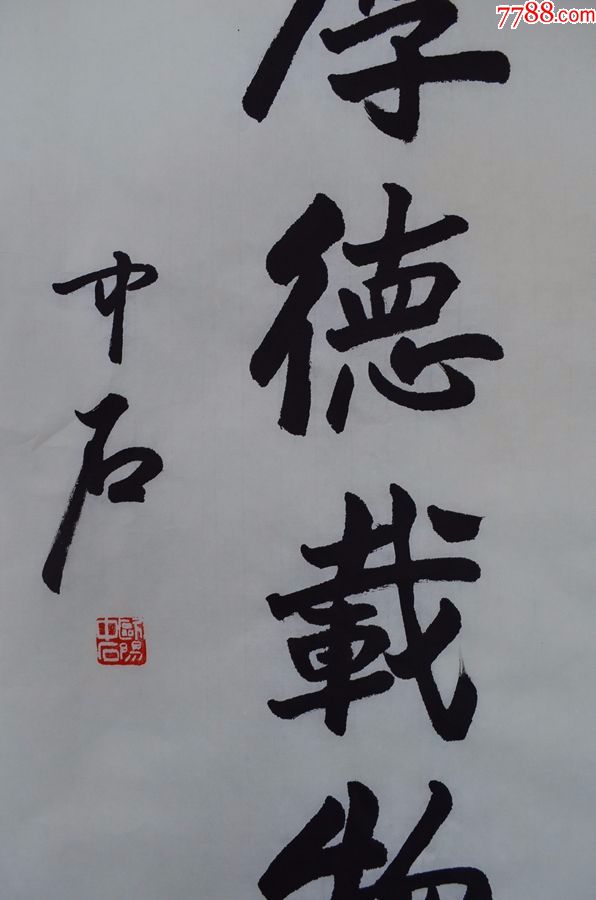 7788.com
厚德載物
中石
歐陽中石